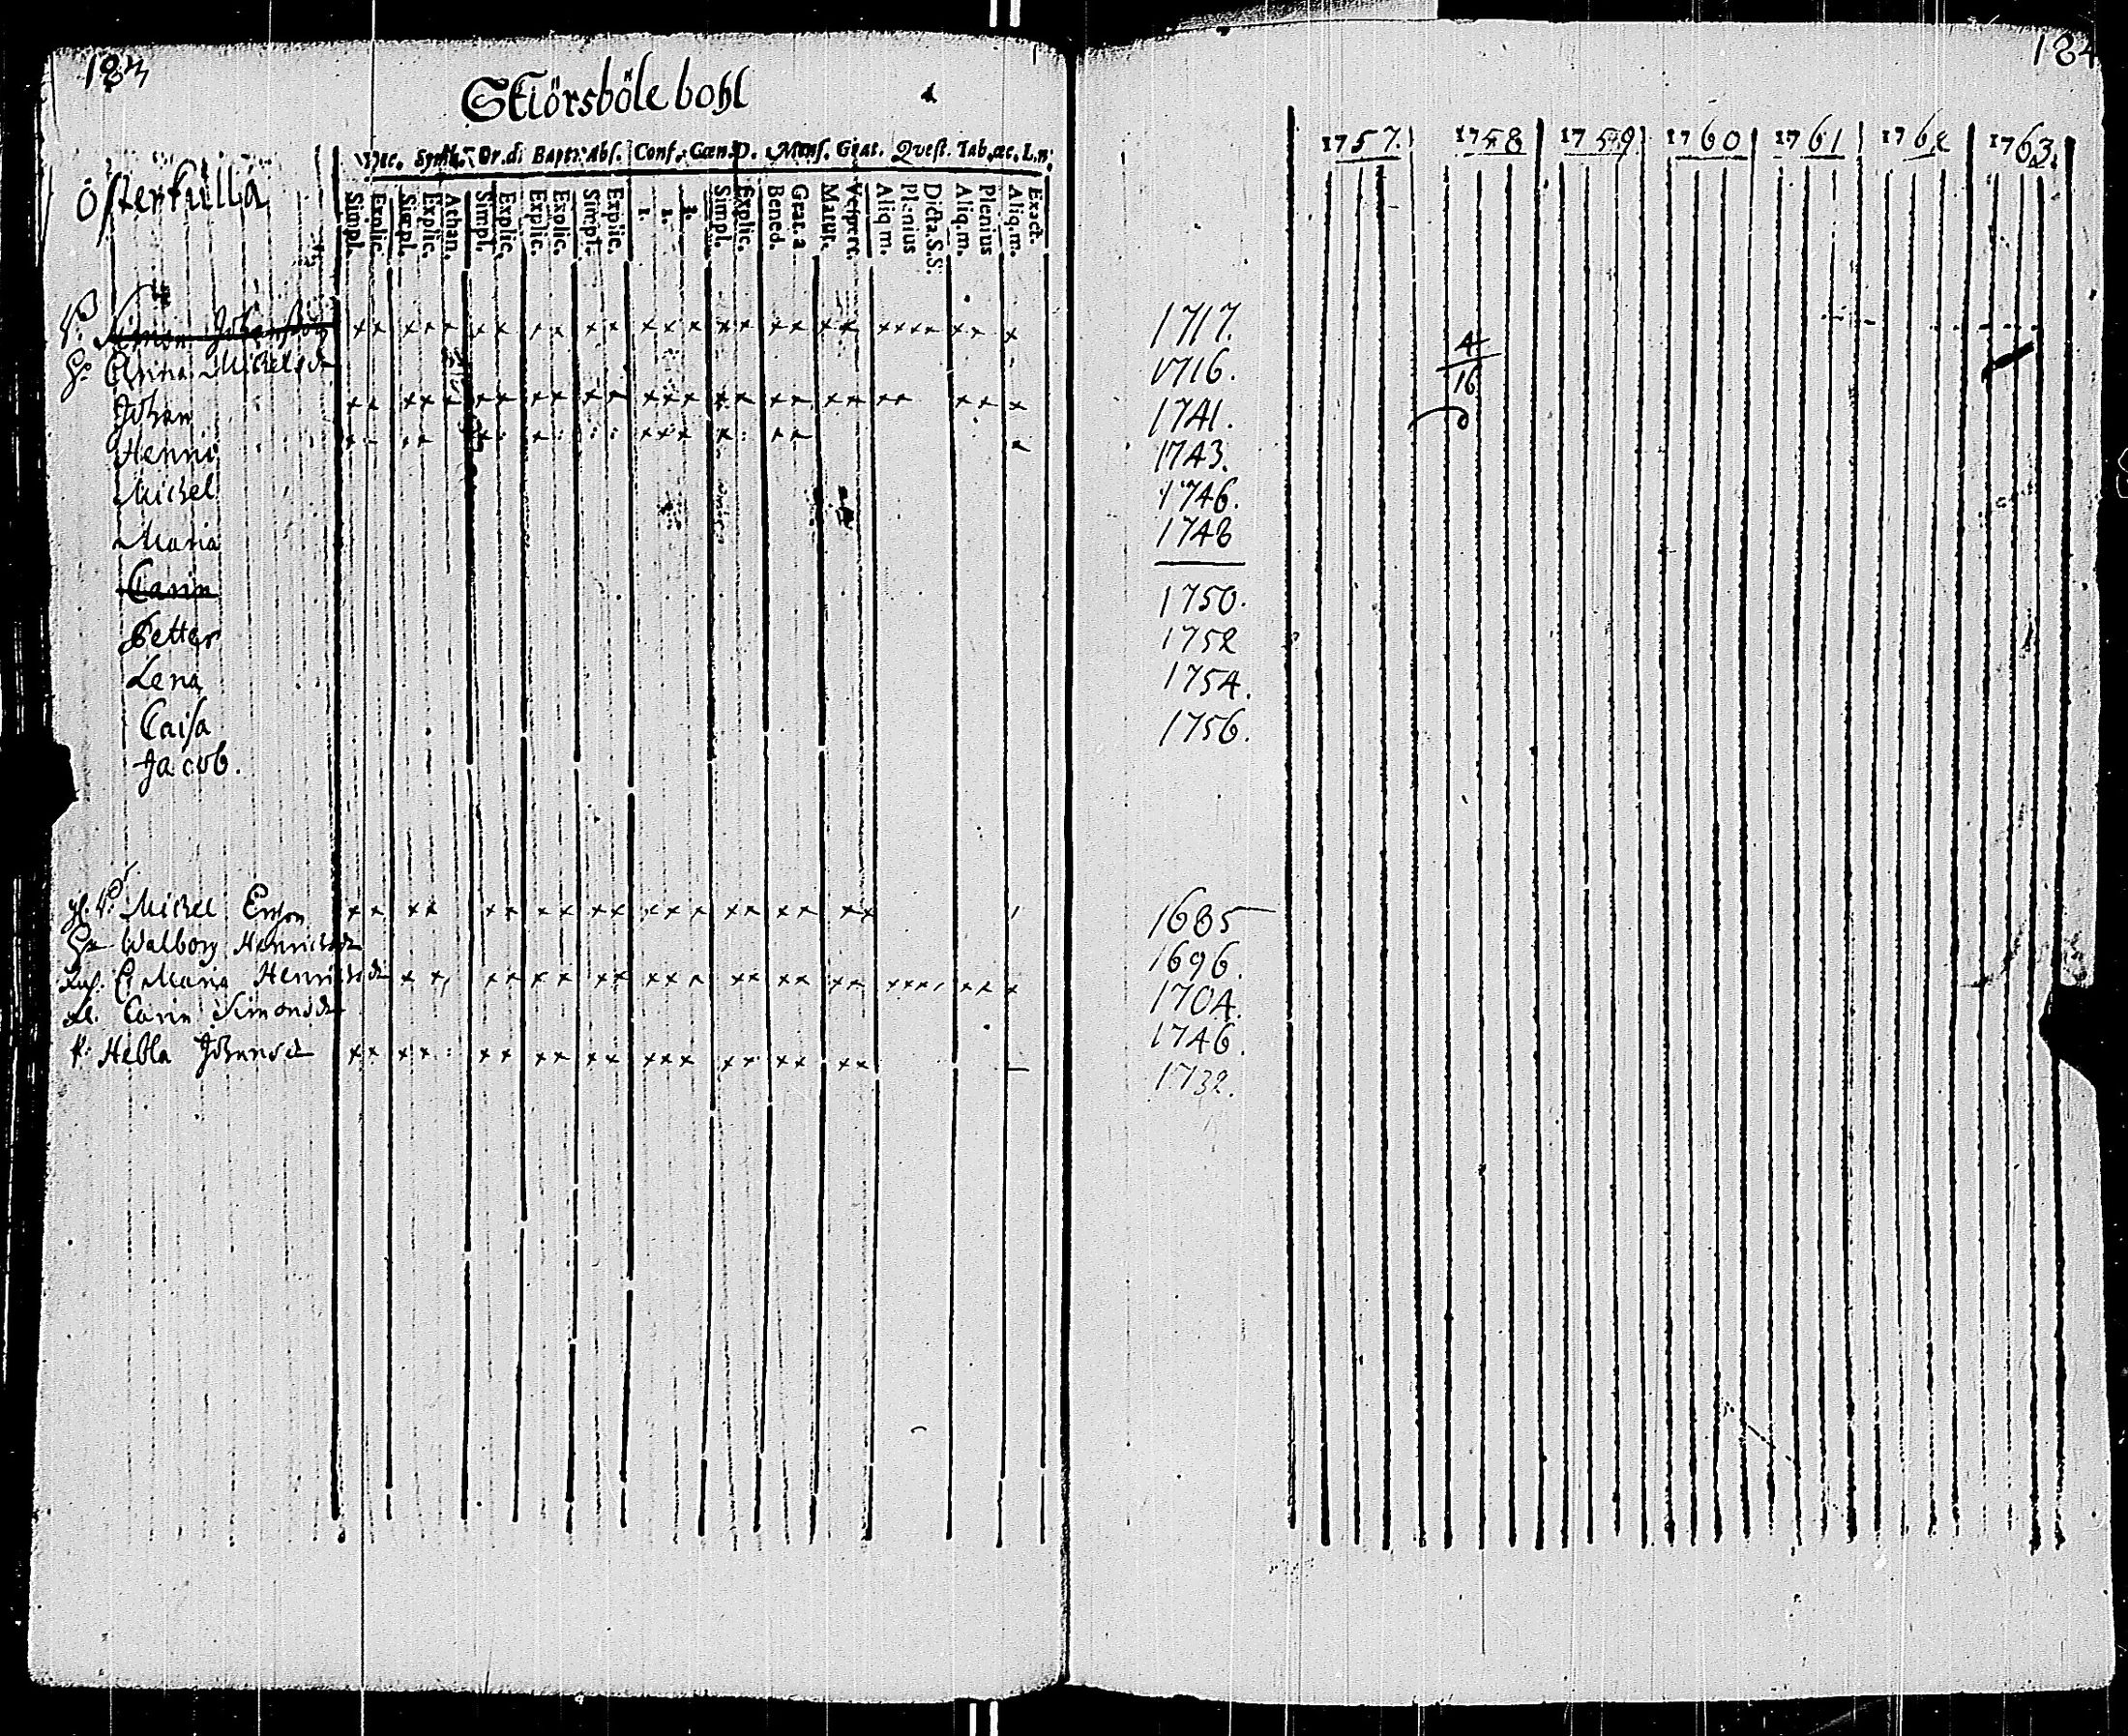 183
Skiörsböle bohl
Österkulla
Dec. Symb. Or.d. Bapt. Abs. Conf. Cæn.D. Mens. Grat. Qvest. Tab.æc. L.n.
Simpl. Explic. Simpl. Explic. Athan. Simpl. Explic. Explic. Explic. Simpl. Explic. 1. 2. 3. Simpl. Explic. Bened. Grat.a Matut. Vespere. Aliq.m. Plenius Dicta.S.S. Aliq.m. Plenius Aliq.m. Exact.
Simon Johansson
Anna Michelsdr
Johan
Henric
Michel
Maria
Carin
Petter
Lena
Caisa
Jacob.
Michel Ersson
Walborg Henricsdr
Maria Henricsdr
Carin Simonsdr
Hebla Johansdr
184
1757. 1758 1759 1760 1761 1762 1763.
1717.
1716.
4
16
1741.
1743.
1746.
1748
1750.
1752
1754.
1756.
1685
1696.
1704.
1746.
1732.